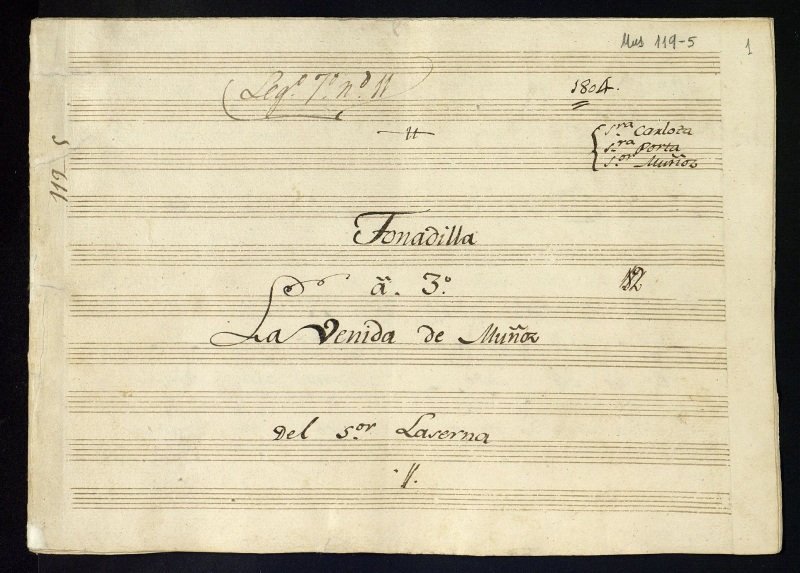 Mus 119-5
1
Leg.º 7º n.º 11
1804.
S.ra Carlota
S.ra Porta
S.or Muñoz
119 5
Tonadilla
â. 3.º
La Venida de Muñoz
Del S.or Laserna